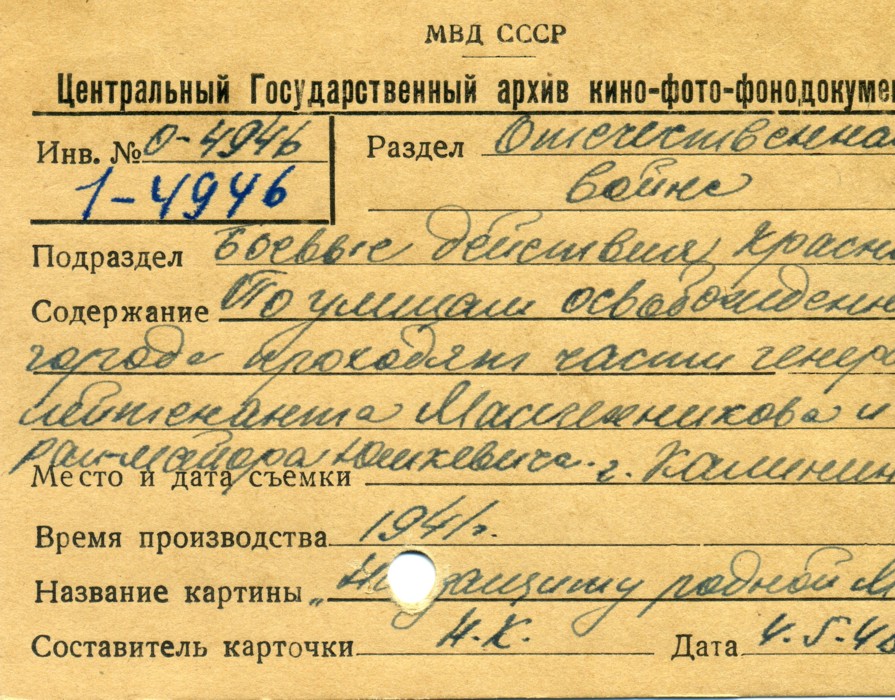 МВД СССР
Центральный Государственный архив кино-фото-фонодокумен
Инв. № О-4946
1-4946
Раздел Отечественная
война
Подраздел Боевые действия Красн
Содержание По улицам освобожденн
города проходят части генер
лейтенанта Масленникова и
рал-майора Юшкевича.
Место и дата съемки г. Калинин
Время производства 1941г.
Название картины „На защиту родной М
Составитель карточки Н.К. Дата 4.5.48